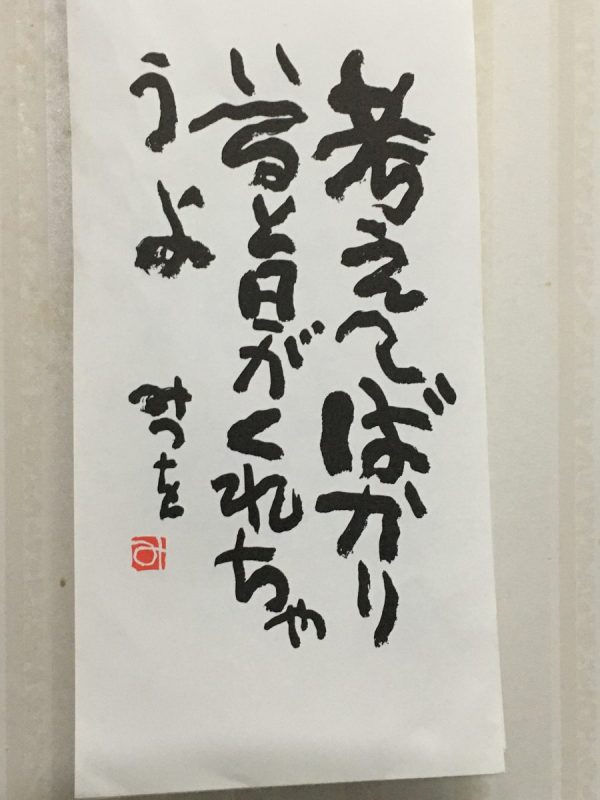 考えてばかり
いると日がくれちゃ
うよ
みつを
み